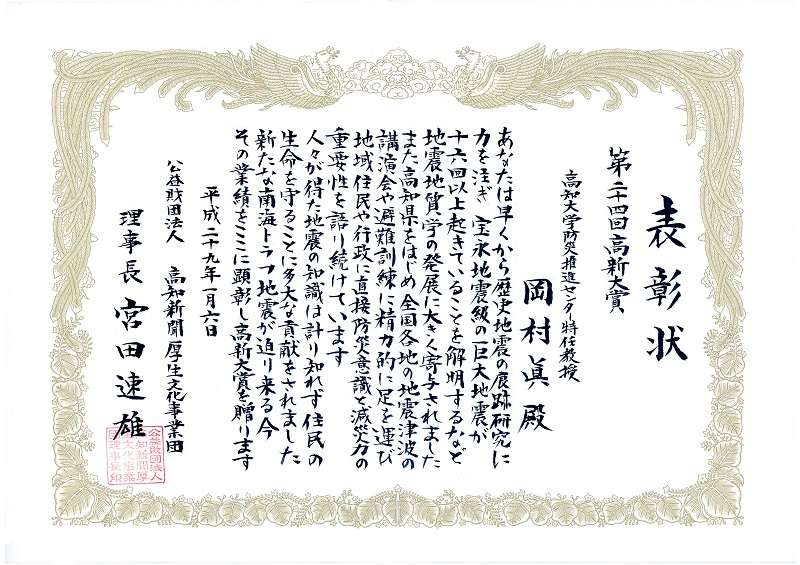 表彰状
第二十四回高新大賞
高知大学防災推進センター特任教授
岡村眞殿
あなたは早くから歴史地震の痕跡研究に
力を注ぎ 宝永地震級の巨大地震が
十六回以上起きていることを解明するなど
地震地質学の発展に大きく寄与されました
また高知県をはじめ全国各地の地震津波の
講演会や避難訓練に精力的に足を運び
地域住民や行政に直接防災意識と減災力の
重要性を語り続けています
人々が得た地震の知識は計り知れず 住民の
生命を守ることに多大な貢献をされました
新たな南海トラフ地震が迫り来る今
その業績をここに顕彰し高新大賞を贈ります
平成二十九年一月六日
公益財団法人 高知新聞厚生文化事業団
理事長 宮田速雄
公益財団法人
高知新聞厚
生文化事業
団理事長印